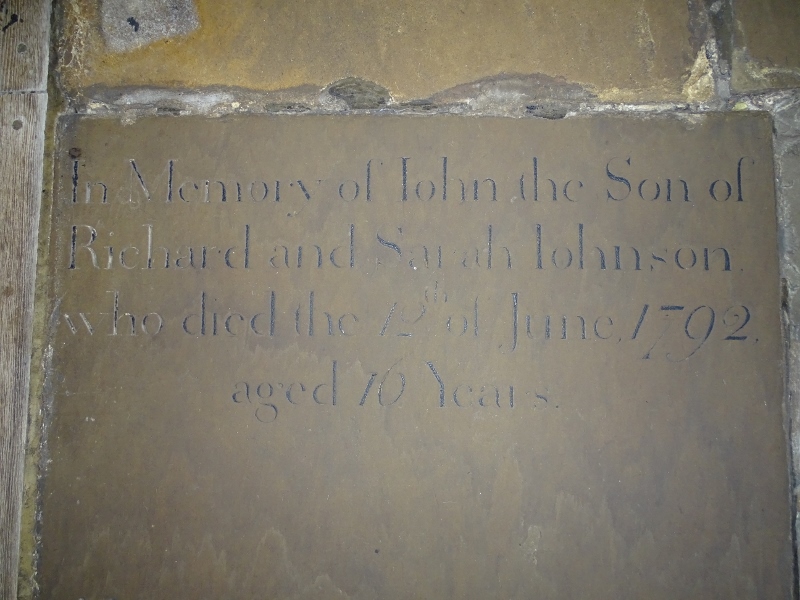 In Memory of Iohn the Son of
Richard and Sarah Iohnson,
who died the 12th of June, 1792,
aged 16 Years.